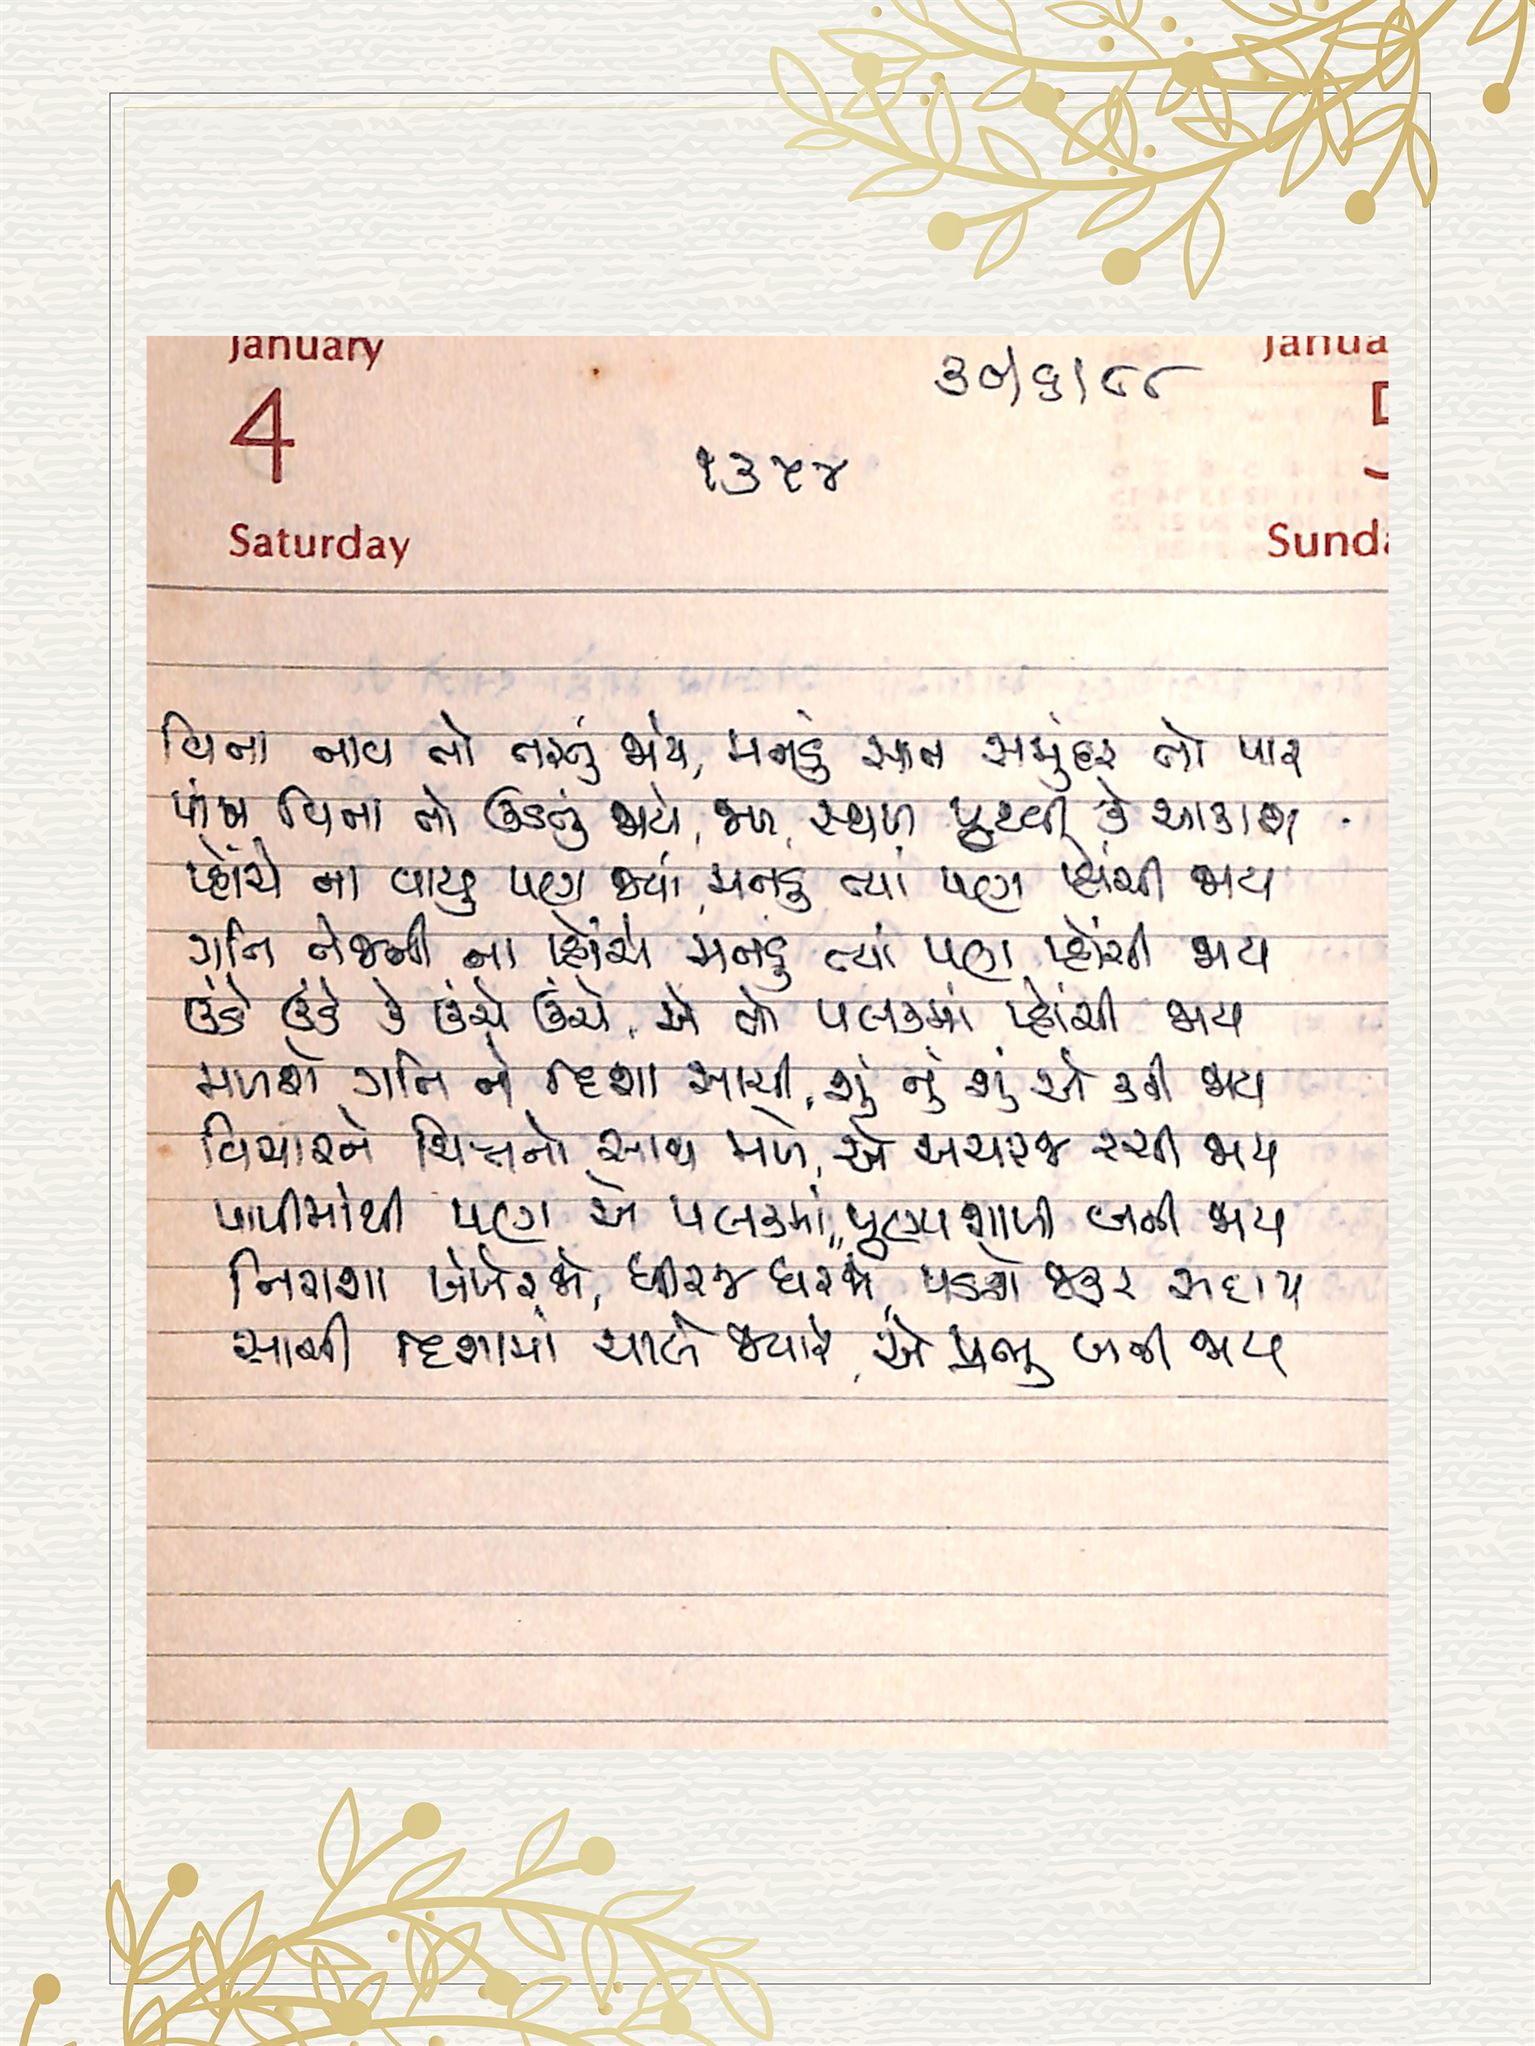 January
Janua
30/૬/૮૮
4
૧૩૫૪
Saturday
Sunda
વિના નાવ તો તરતું જાયે, મનડું સાત સમુંદર તો પાર
પાંખ વિના તો ઉડતું જાયે, જળ, સ્થળ પૃથ્વી કે આકાશ
પ્હોંચે ના વાયુ પણ જ્યાં, મનડું ત્યાં પણ પ્હોંચી જાય
ગતિ તેજની ના પ્હોંચે મનડું ત્યાં પણ પ્હોંચી જાય
ઉંડે ઉંડે કે ઉંચે ઉંચે, એ તો પલકમાં પ્હોંચી જાય
મળશે ગતિ ને દિશા સાચી, શું નું શું એ કરી જાય
વિચારને ચિત્તનો સાથ મળે, એ અચરજ રચી જાય
પાપીમાંથી પણ એ પલકમાં, પુણ્યશાળી બની જાય
નિરાશા ખંખેરજે, ધીરજ ધરજે, પડશે જરૂર સદાય
સાચી દિશામાં ચાલે જ્યારે, એ પ્રભુ બની જાય